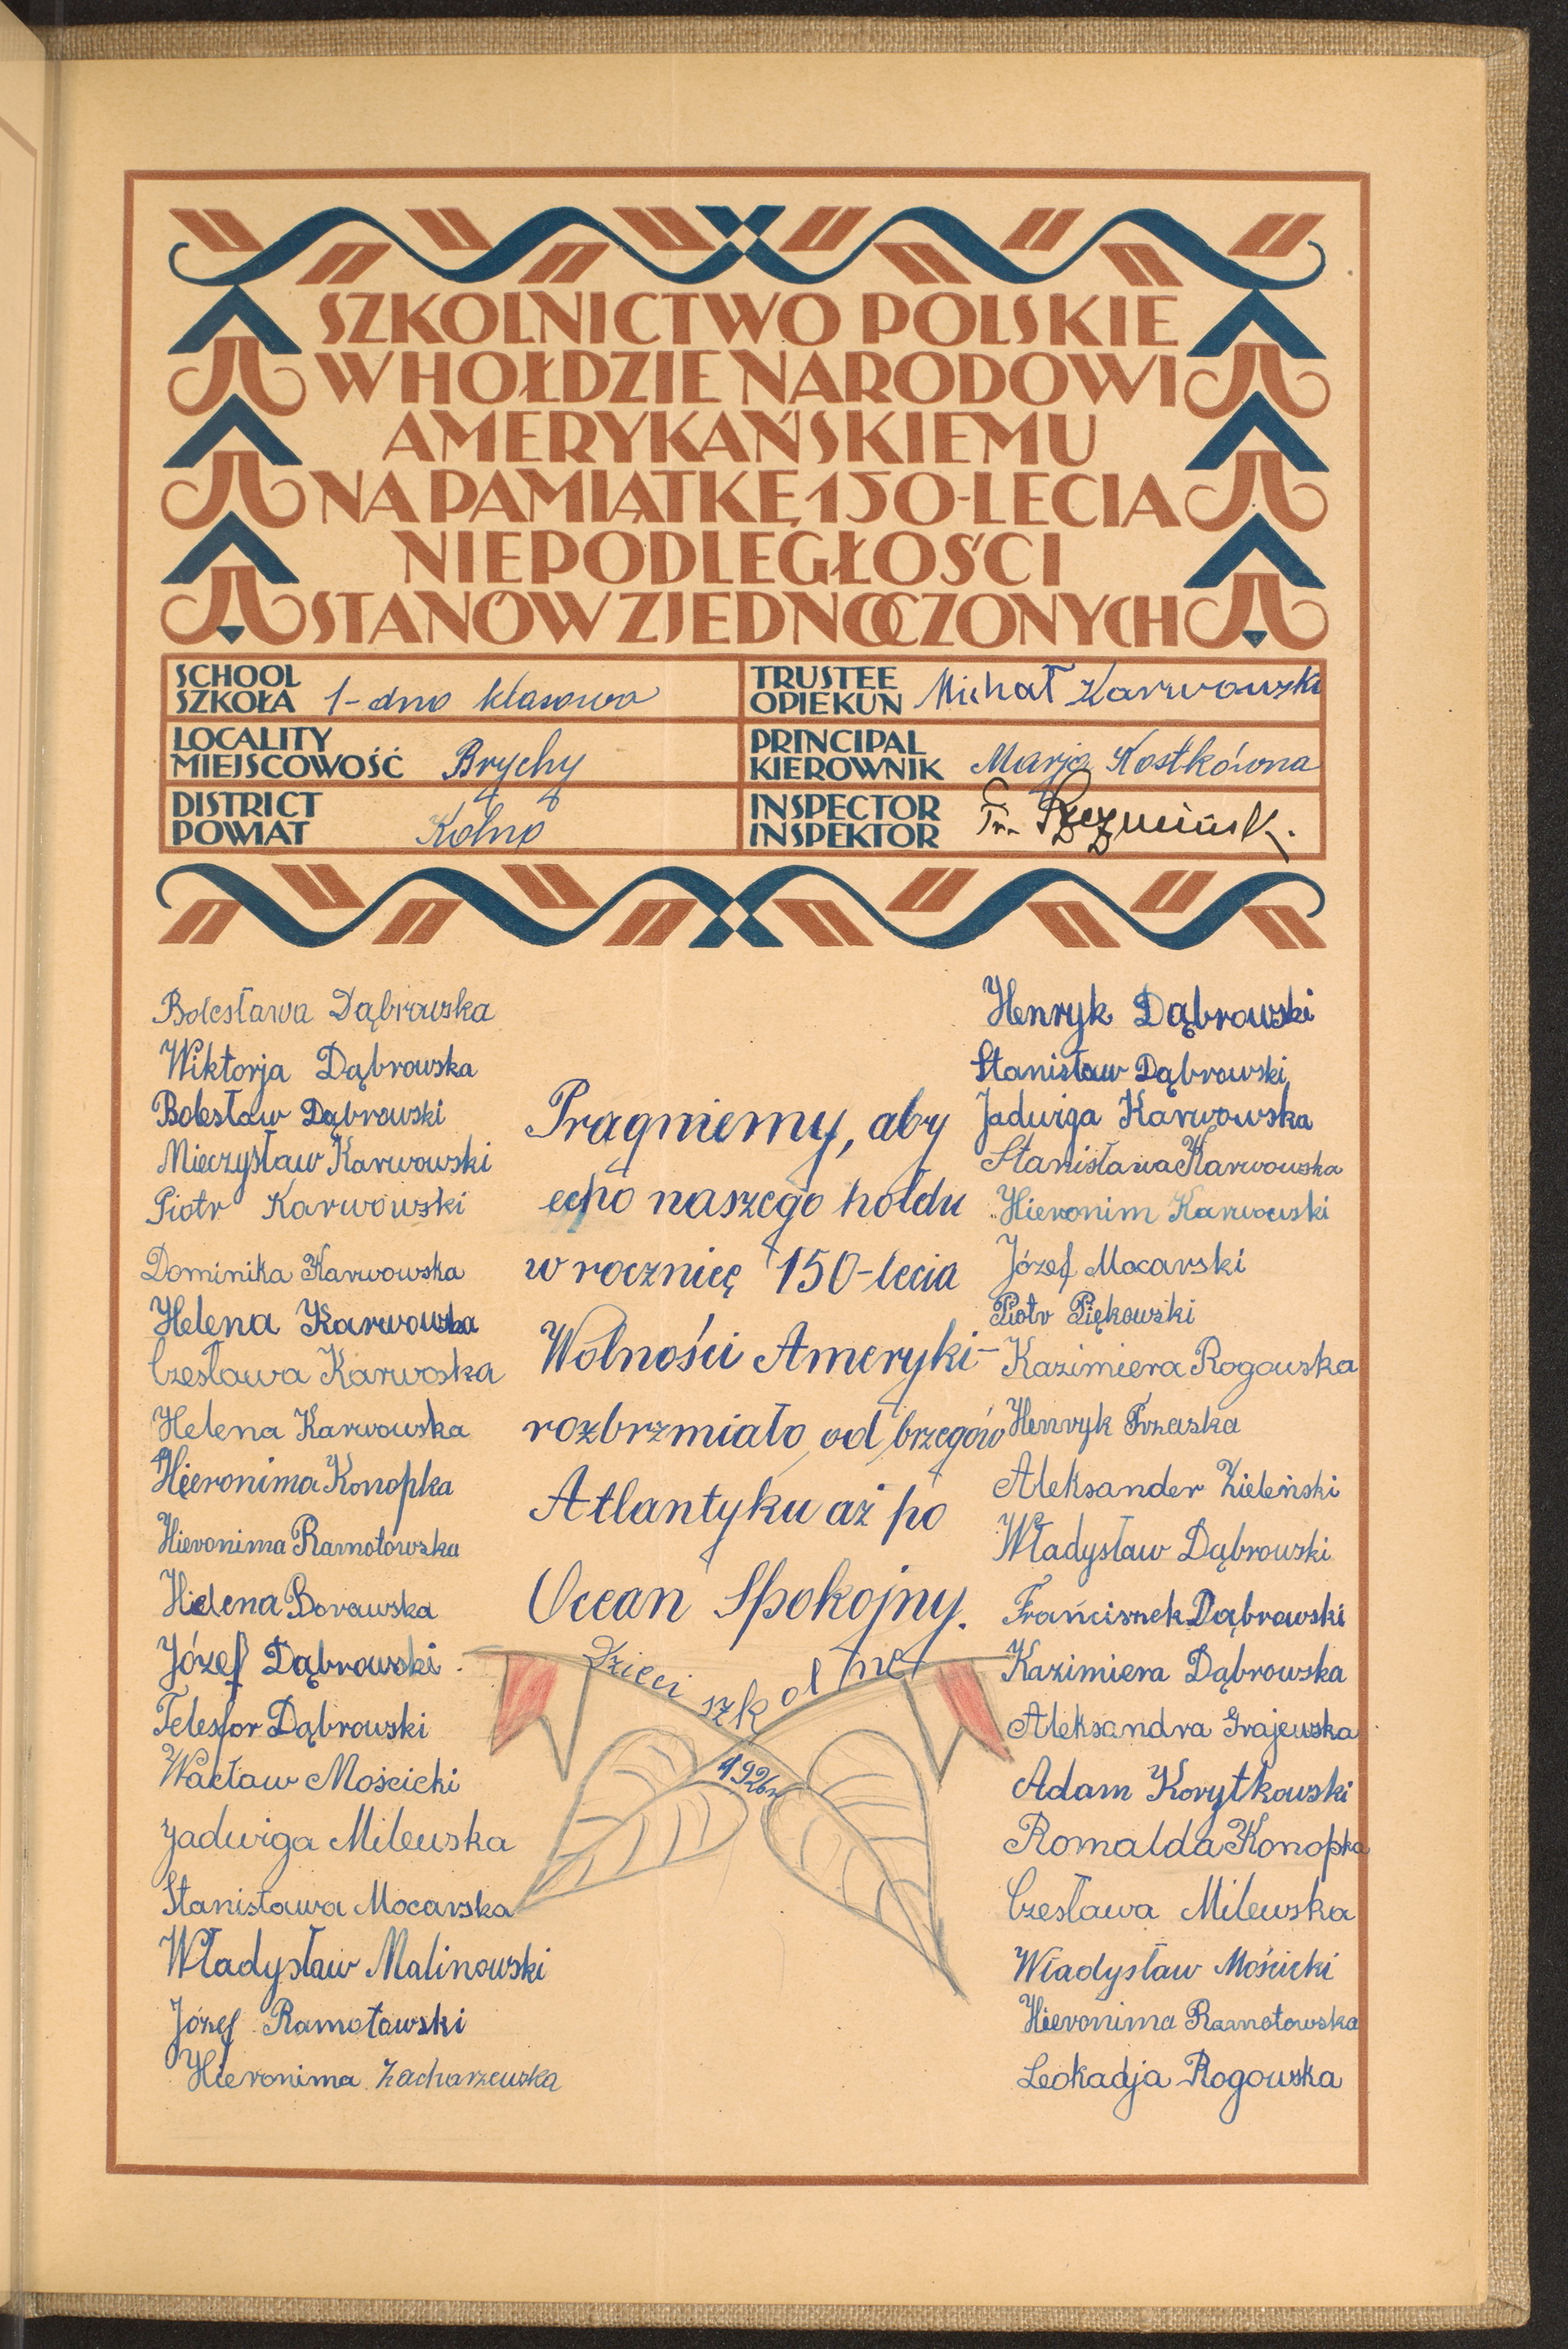 SZKOLNICTWO POLSKIE
W HOŁDZIE NARODOWI
AMERYKAŃSKIEMU
NA PAMIĄTKĘ 150-LECIA
NIEPODLEGŁOŚCI
STANÓW ZJEDNOCZONYCH
SCHOOL
SZKOŁA 1-dno klasowa
TRUSTEE
OPIEKUN Michał Karwowski
LOCALITY
MIEJSCOWOŚĆ Brychy
PRINCIPAL
KIEROWNIK Marja Kostkówna
DISTRICT
POWIAT Kolno
INSPECTOR
INSPEKTOR
Bolesława Dąbrowska
Wiktorja Dąbrowska
Bolesław Dąbrowski
Mieczysław Karwowski
Piotr Karwowski
Dominika Karwowska
Helena Karwowska
Czesława Karwoska
Helena Karwowska
Hieronima Konopka
Hieronima Ramotowska
Helena Borawska
Józef Dąbrowski
Telesfor Dąbrowski
Wacław Mościcki
Jadwiga Milewska
Stanisława Mocarska
Władysław Malinowski
Józef Ramotowski
Hieronima Zacharzewska
Pragniemy, aby
echo naszego hołdu
w rocznicę 150-lecia
Wolności Ameryki-
rozbrzmiało od brzegów
Atlantyku aż po
Ocean Spokojny.
Dzieci szkolne
1926r
Henryk Dąbrowski
Stanisław Dąbrowski
Jadwiga Karwowska
Stanisława Karwowska
Hieronim Karwowski
Józef Mocarski
Piotr Piękowski
Kazimiera Rogowska
Henryk Trzaska
Aleksander Zieleński
Władysław Dąbrowski
Franciszek Dąbrowski
Kazimiera Dąbrowska
Aleksandra Grajewska
Adam Korytkowski
Romalda Konopka
Czesława Milewska
Władysław Mościcki
Hieronima Ramotowska
Leokadja Rogowska